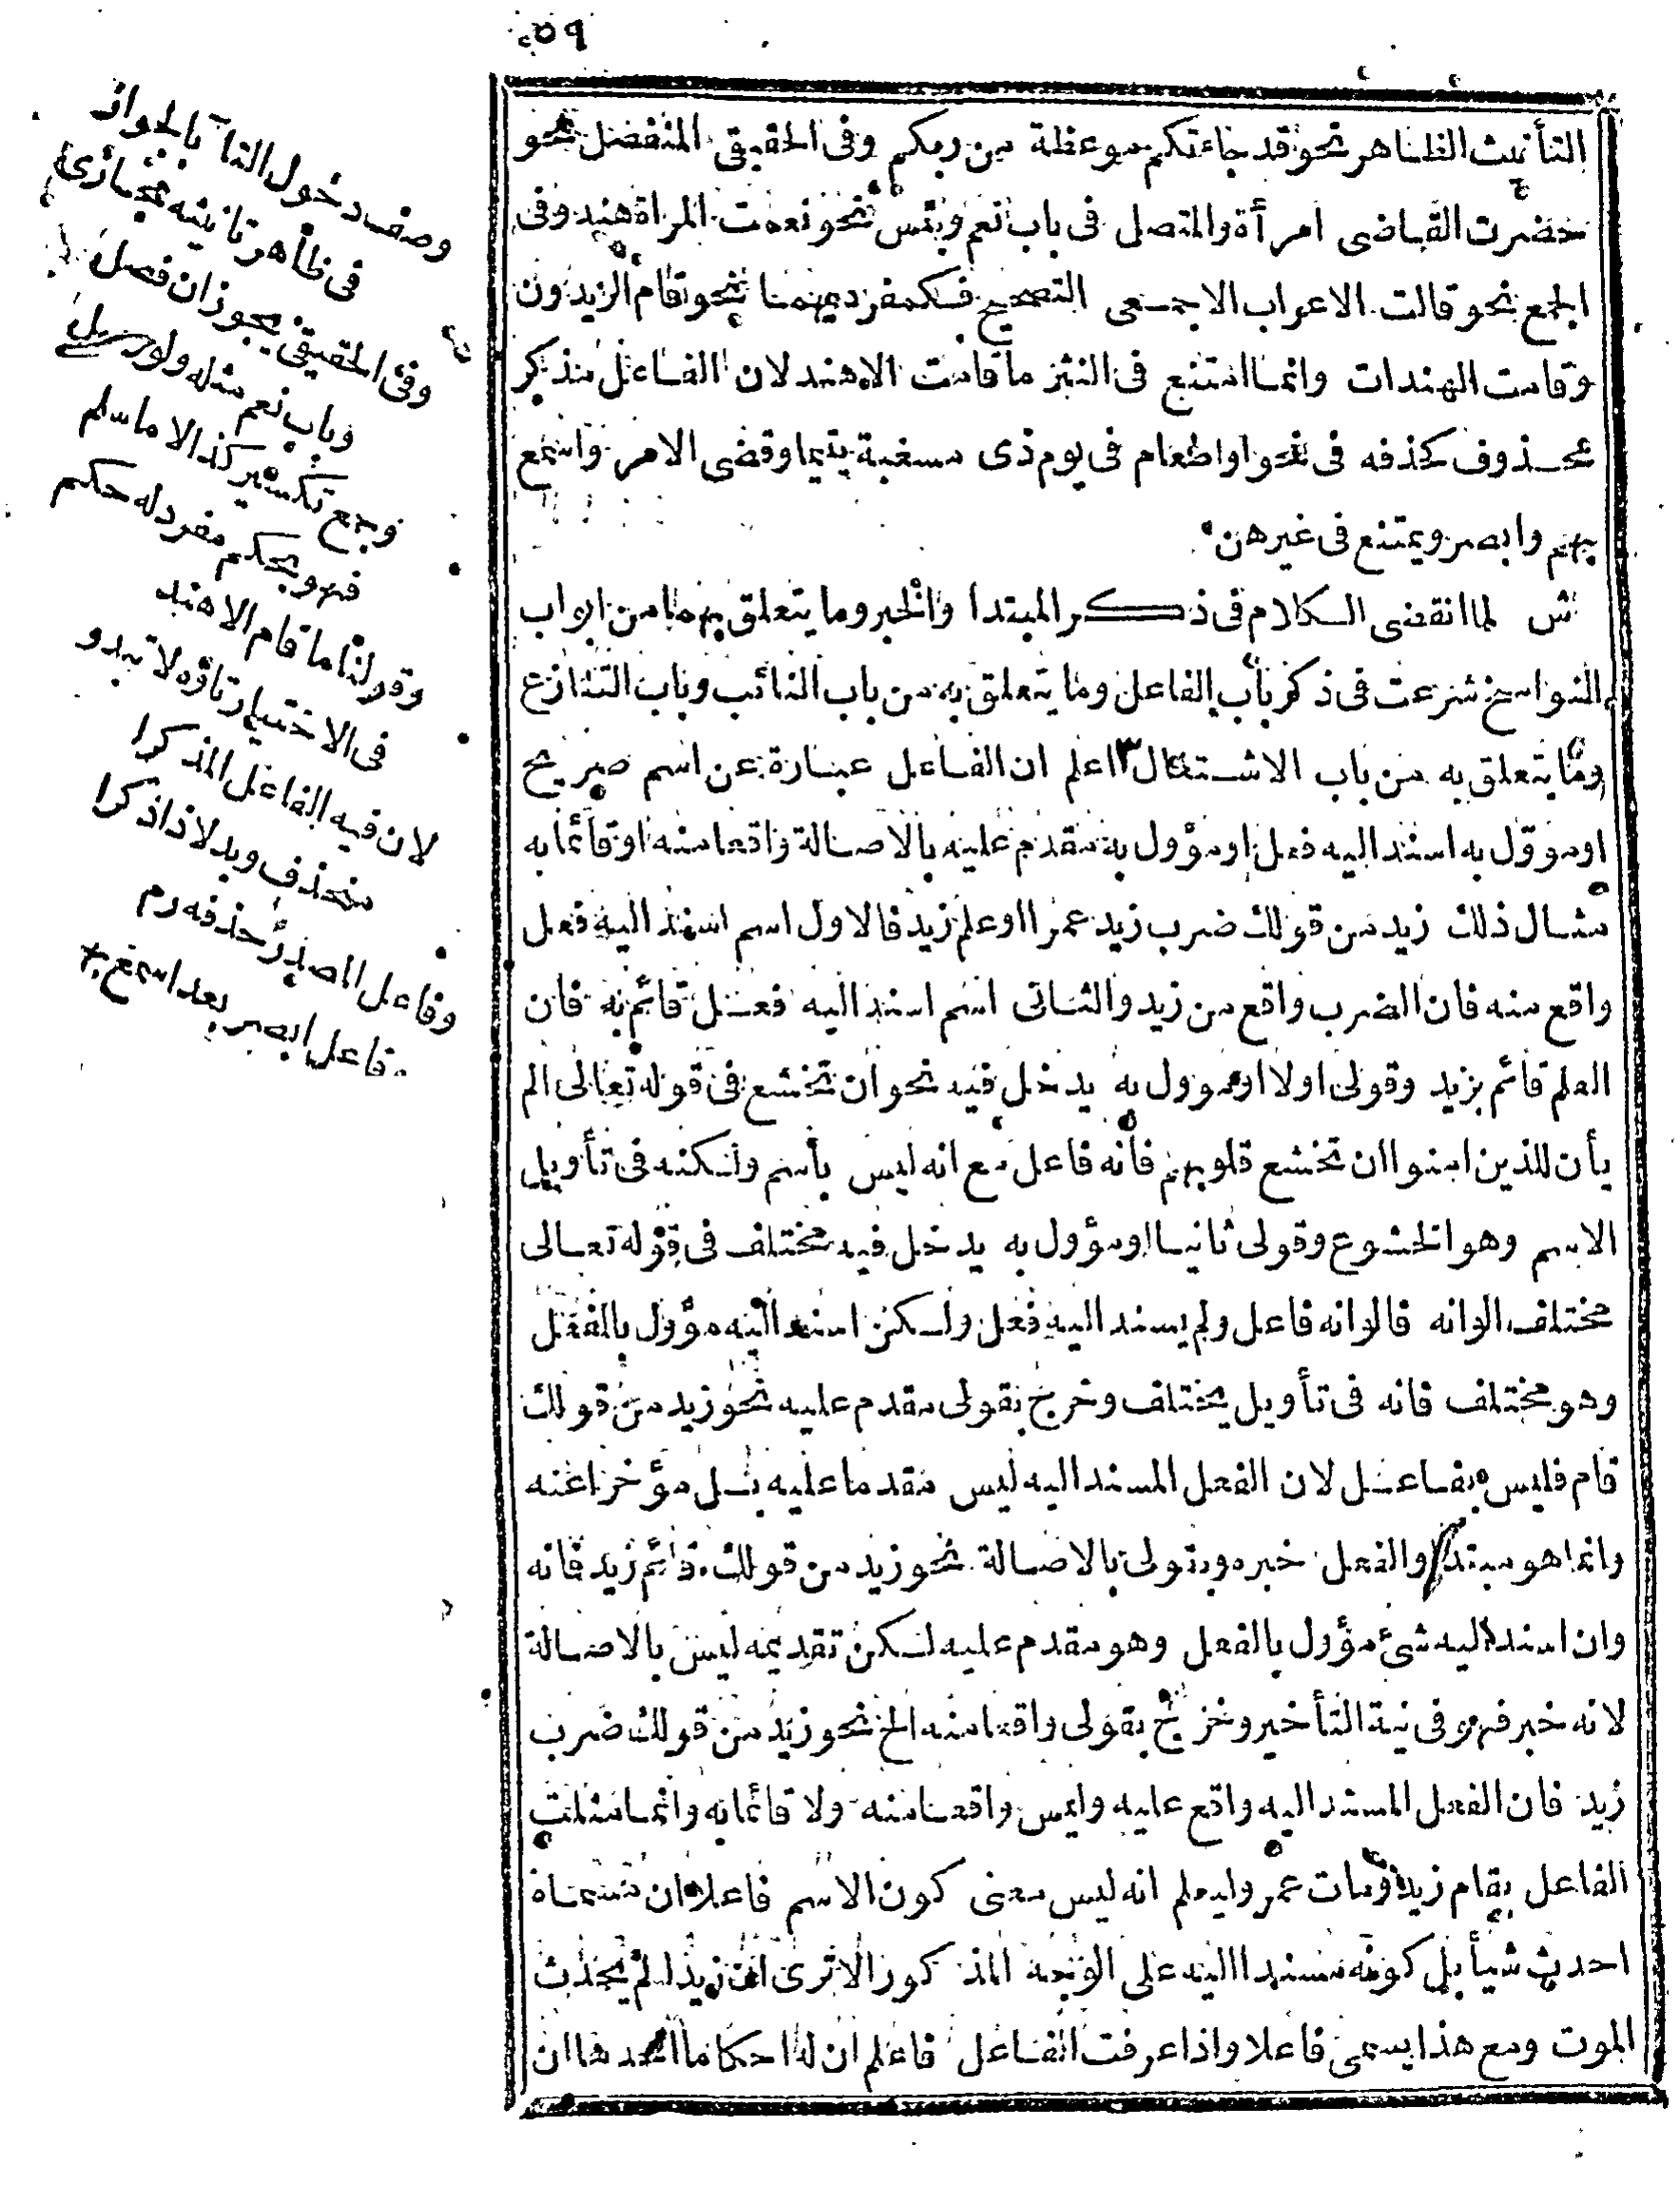 ٥٩
التأنيث الظاهر نحو قد جاءتكم موعظة من ربكم وفى الحقيقى المنفصل نحو
حضرت القاضى امرأة والمتصل فى باب نعم وبئس نحو نعمت المراة هند وفى
الجمع نحو قالت الاعراب الاجمعى التصحيح فكمفرديهما نحو قام الزيدون
وقامت الهندات وانما امتنع فى النثر ما قامت الا هند لان الفاعل مذكر
محذوف كحذفه فى نحو او اطعام فى يوم ذى مسغبة يتيما وقضى الامر واسمع
بهم وابصر ويمتنع فى غيرهن
ش لما انقضى الكلام فى ذكر المبتدا والخبر وما يتعلق بهما من ابواب
النواسخ شرعت فى ذكر باب الفاعل وما يتعلق به من باب النائب وباب التنازع
وما يتعلق به من باب الاشتغال ٣ اعلم ان الفاعل عبارة عن اسم صريح
او موؤل به اسند اليه فعل او مؤول به مقدم عليه بالاصالة واقعا منه او قائما به
مثال ذلك زيد من قولك ضرب زيد عمرا او علم زيد فالاول اسم اسند اليه فعل
واقع منه فان الضرب واقع من زيد والثانى اسم اسند اليه فعل قائم به فان
العلم قائم بزيد وقولى اولا او موول به يدخل فيه نحو ان تخشع فى قوله تعالى الم
يأن للذين امنوا ان تخشع قلوبهم فانه فاعل مع انه ليس باسم ولكنه فى تأويل
الاسم وهو الخشوع وقولى ثانيا او مؤول به يدخل فيه مختلف فى قوله تعالى
مختلف الوانه فالوانه فاعل ولم يسند اليه فعل ولكن اسند اليه مؤول بالفعل
وهو مختلف فانه فى تأويل يختلف وخرج بقولى مقدم عليه نحو زيد من قولك
قام فليس بفاعل لان الفعل المسند اليه ليس مقدما عليه بل مؤخرا عنه
وانما هو مبتدا والفعل خبره وبقولى بالاصالة نحو زيد من قولك قائم زيد فانه
وان اسند اليه شئ مؤول بالفعل وهو مقدم عليه لكن تقديمه ليس بالاصالة
لانه خبر فهو فى نية التأخير وخرج بقولى واقعا منه الخ نحو زيد من قولك ضرب
زيد فان الفعل المسند اليه واقع عليه وليس واقعا منه ولا قائما به وانما مثلت
الفاعل بقام زيد ومات عمر وليعلم انه ليس معنى كون الاسم فاعلا ان مسماه
احدث شيأ بل كونه مسندا اليه على الوجه المذكور الا ترى ان زيدا لم يحدث
الموت ومع هذا يسمى فاعلا واذا عرفت الفاعل فاعلم ان له احكاما احدها ان
وصف دخول التآ بالجواز
فى ظاهر تانيثه مجازى
وفى الحقيقى يجوز ان فصل
وباب نعم مثله ولو
وجمع تكسير كذا الا ما سلم
فهو بحكم مفرد له حكم
وقولنا ما قام الا هند
فى الاختيار تاؤه لا تبدو
لان فيه الفاعل المذكرا
منحذف وبدلا ذا ذكرا
وفاعل المصدر حذفه رم
وفاعل ابصر بعد اسمع بهم